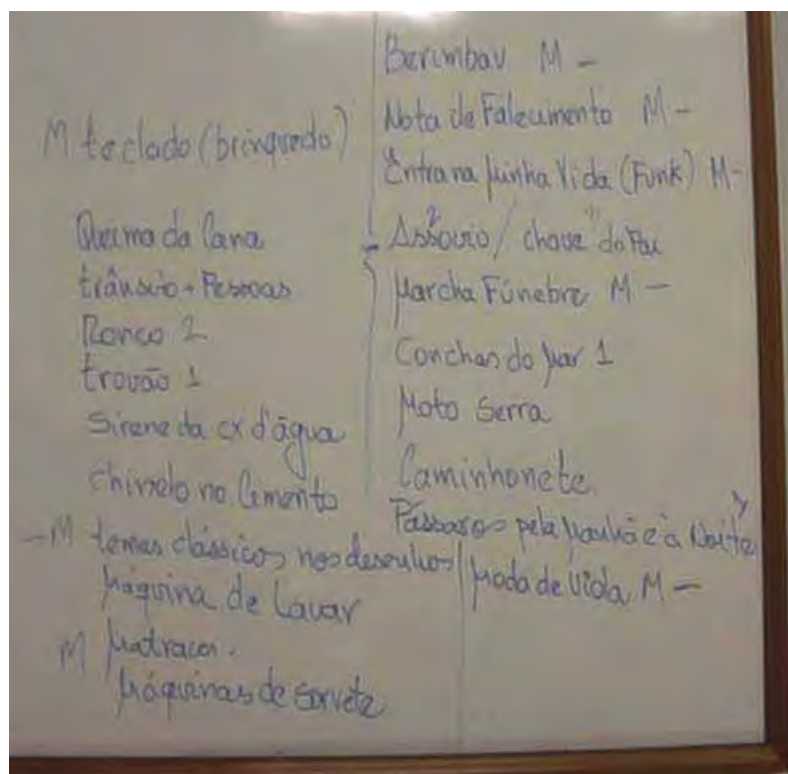 M teclado (brinquedo)
Queima da Cana
trânsito + Pessoas
Ronco 2
trovão 1
Sirene da cx d'água
chinelo no Cimento
- M temas clássicos nos desenhos
Máquina de Lavar
M Matraca
Máquinas de sorvete
Berimbau M -
Nota de Falecimento M -
Entra na Minha Vida (Funk) M -
- Assovio / chave do Pai
Marcha Fúnebre M -
Conchas do Mar 1
Moto Serra
Caminhonete
Pássaros pela Manhã e à Noite
Moda de Viola M -